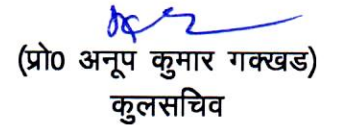 (प्रो0 अनूप कुमार गक्खड)
कुलसचिव